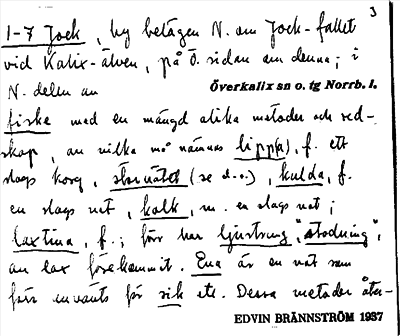 3
1-7 Jock, by belägen N. om Jock-fallet
vid Kalix-älven, på Ö. sidan om denna; i
Överkalix sn o. tg Norrb. l.
N. delen av
fiske med en mängd olika metoder och red-
skap, av vilka må nämnas lipp(a), f. ett
slags korg, stornätet (se d.o.), kulda, f.
en slags not, kolk, m. en slags not;
laxtina, f.; förr har ljustrung, "stodning",
av lax förekommit. Ena är en not som
förr använts för sik etc. Dessa metoder åter-
EDVIN BRÄNNSTRÖM 1937